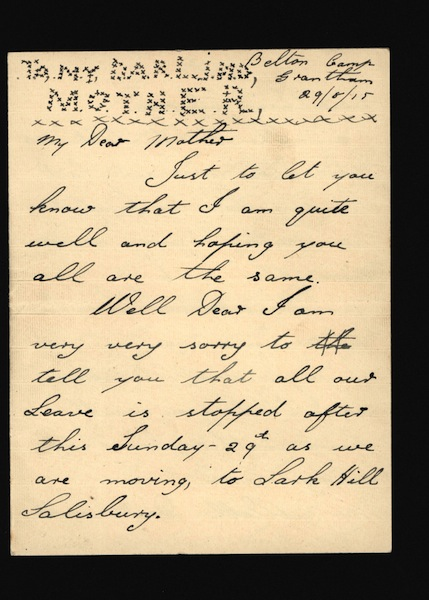 TO, MY, DARLING,
MOTHER,
Belton Camp
Grantham
29/8/15
My Dear Mother
Just to let you
know that I am quite
well and hoping you
all are the same.
Well Dear I am
very very sorry to the
tell you that all our
Leave is stopped after
this Sunday - 29th as we
are moving, to Lark Hill
Salisbury.